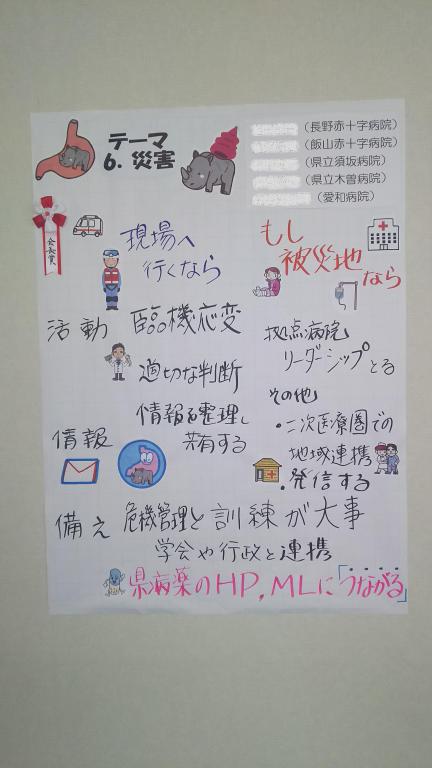 テーマ
6. 災害
（長野赤十字病院）
（飯山赤十字病院）
（県立須坂病院）
（県立木曽病院）
（愛和病院）
会長賞
現場へ
行くなら
もし
被災地なら
活動 臨機応変
適切な判断
拠点病院
リーダーシップとる
その他
情報 情報を整理し
共有する
・二次医療圏での
地域連携
・発信する
備え 危機管理と訓練が大事
学会や行政と連携
県病薬のHP、MLに「つながる」